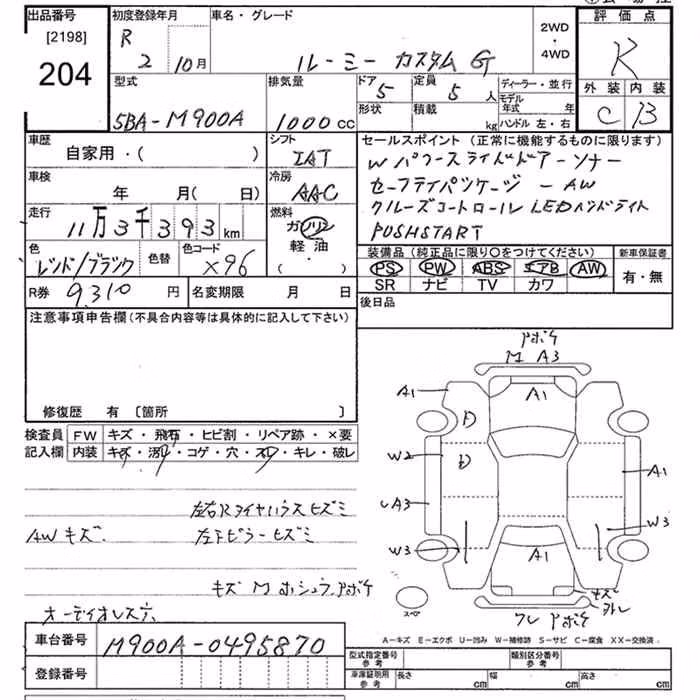 出品番号
[2198]
204
初度登録年月
R 2 10月
車名・グレード
ルーミー カスタム G
2WD
・
4WD
評価点
R
外装 内装
C B
型式
5BA-M900A
排気量
1000cc
ドア
5
定員
5人
ディーラー・並行
形状
積載
kg
モデル年式 年
ハンドル 左・右
車歴
自家用・( )
シフト
IAT
車検
年 月( 日)
冷房
AAC
走行
11万3千393km
燃料
ガソリン
軽油
( ・ )
色
レッド/ブラック
色替
色コード
X96
R券 9,310 円
名変期限 月 日
セールスポイント (正常に機能するものに限ります)
Wパワースライドドアーソナー
セーフティパッケージ - AW
クルーズコントロール LEDヘッドライト
PUSHSTART
装備品 (純正品に限り○をつけてください)
PS PW ABS エアB AW
SR ナビ TV カワ
新車保証書
有・無
後日品
注意事項申告欄(不具合内容等は具体的に記入して下さい)
修復歴 有 〔箇所 〕
検査員記入欄
FW キズ・飛石・ヒビ割・リペア跡・×要
内装 キズ・汚レ・コゲ・穴・スレ・キレ・破レ
左右Rタイヤハウスヒズミ
AWキズ. 左下ピラーヒズミ
キズ M ホシュウ.アポケ
オーディオレス
アポケ
M A3
A1
A1
W2
A3
W3
A1
A1
W3
A1
キズ
スペア
アポケ
A-キズ E-エクボ U-凹み W-補修跡 S-サビ C-腐食 XX-交換済
車台番号
M900A-0495870
登録番号
型式指定番号
参考
類別区分番号
参考
車庫証明用
参考
長さ cm
幅 cm
高さ cm